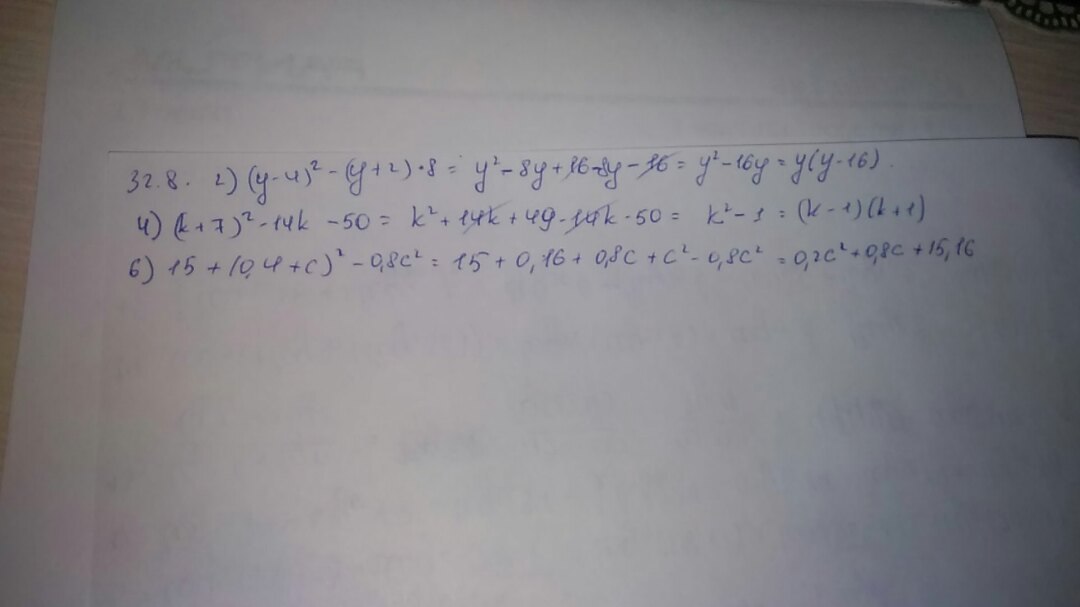 32.8. 2) (y-4)² - (y+2)·8 = y² - 8y + 16 - 8y - 16 = y² - 16y = y(y-16).
4) (k+7)² - 14k - 50 = k² + 14k + 49 - 14k - 50 = k² - 1 = (k-1)(k+1)
6) 15 + (0,4+c)² - 0,8c² = 15 + 0,16 + 0,8c + c² - 0,8c² = 0,2c² + 0,8c + 15,16